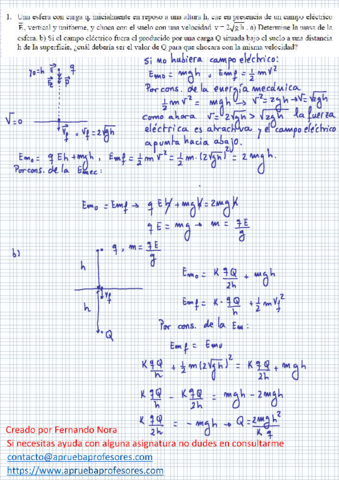 1. Una esfera con carga q, inicialmente en reposo a una altura h, cae en presencia de un campo eléctrico
E, vertical y uniforme, y choca con el suelo con una velocidad v = 2√gh. a) Determine la masa de la
esfera. b) Si el campo eléctrico fuera el producido por una carga Q situada bajo el suelo a una distancia
h de la superficie, ¿cuál debería ser el valor de Q para que chocara con la misma velocidad?
Si no hubiera campo eléctrico:
Em₀ = mgh , Emf = ½mv²
Por cons. de la energía mecánica
½mv² = mgh → v² = 2gh → v = √2gh
como ahora v = 2√gh > √2gh la fuerza
eléctrica es atractiva y el campo eléctrico
apunta hacia abajo.
y₀=h
q
V=0
Vf , Vf = 2√gh
Em₀ = qEh + mgh , Emf = ½mV² = ½m·(2√gh)² = 2mgh.
Por cons. de la Emec:
Em₀ = Emf → qEh + mgh = 2mgh
qE = mg → m = qE/g
b)
q, m = qE/g
h
Vf
h
Q
Em₀ = KqQ/2h + mgh
Emf = K·qQ/h + ½mVf²
Por cons. de la Em:
Emf = Em₀
KqQ/h + ½m(2√gh)² = KqQ/2h + mgh
KqQ/h - KqQ/2h = mgh - 2mgh
KqQ/2h = -mgh → Q = 2mgh²/Kq
Creado por Fernando Nora
Si necesitas ayuda con alguna asignatura no dudes en consultarme
contacto@apruebaprofesores.com
https://www.apruebaprofesores.com